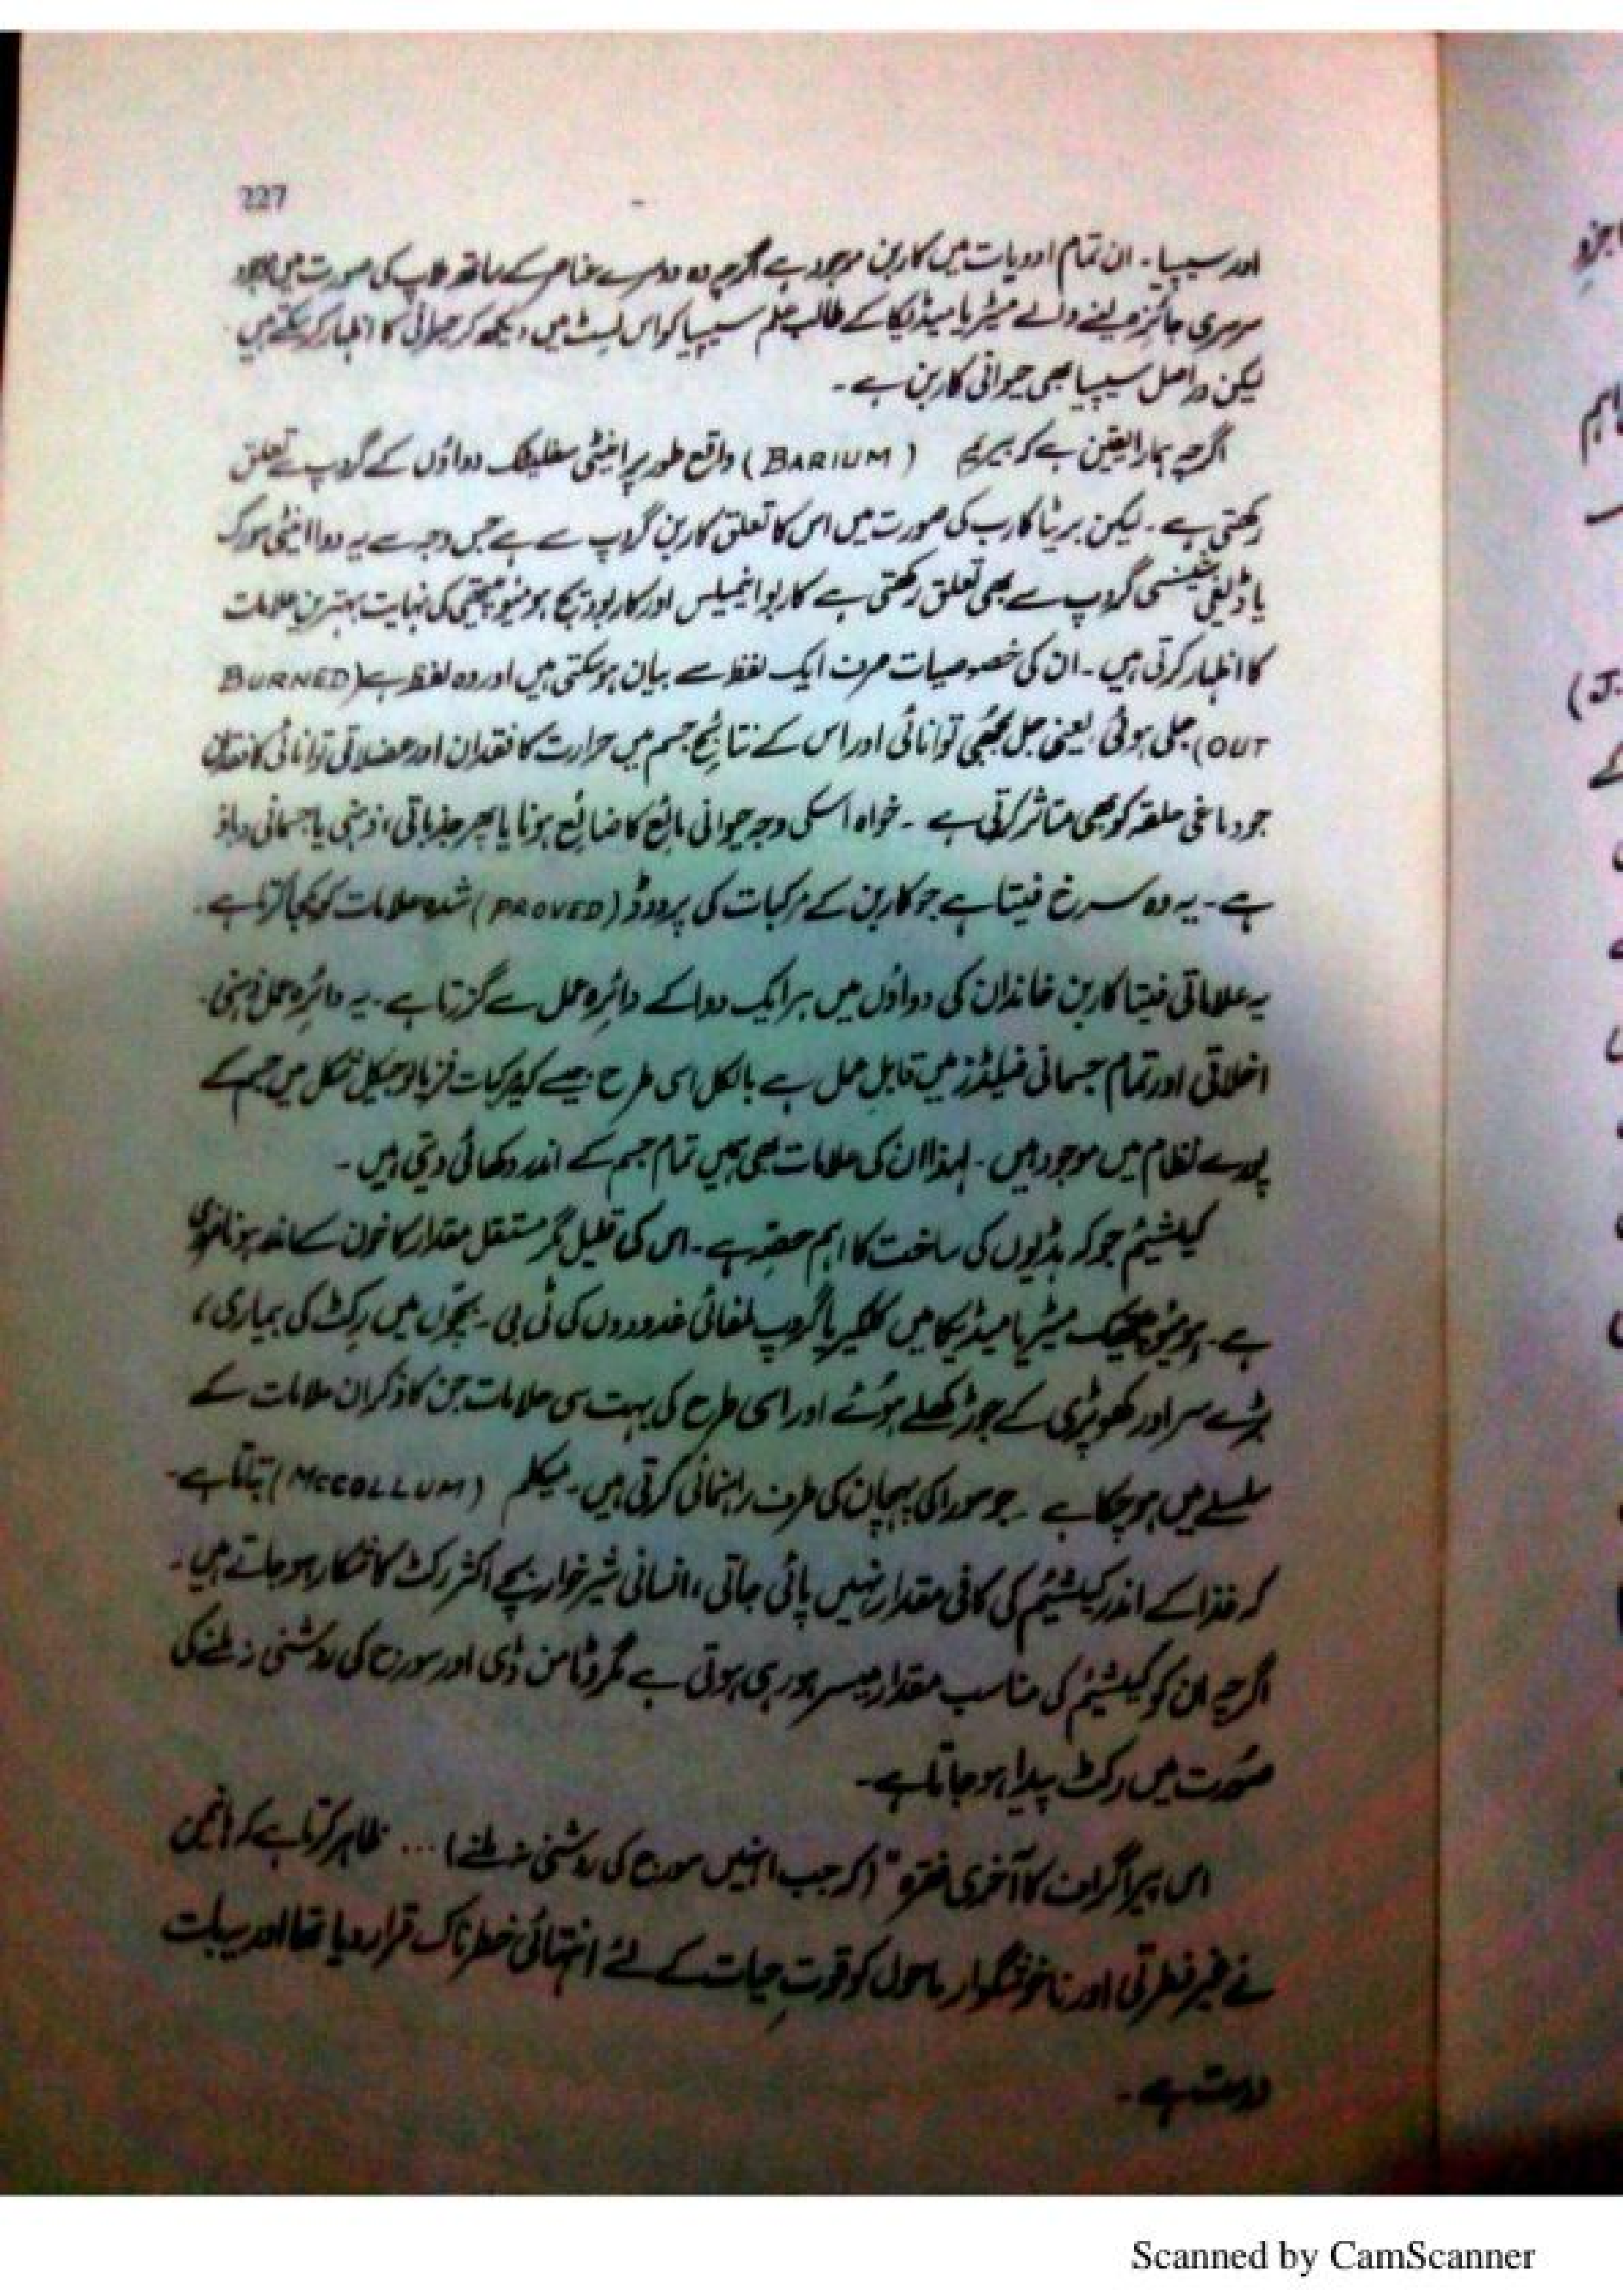 227
اور سیپیا۔ ان تمام ادویات میں کاربن موجود ہے اگرچہ وہ دوسرے عناصر کے ساتھ ملاپ کی صورت میں موجود
سرسری جائزہ لینے والے میٹریا میڈیکا کے طالب علم سیپیا کو اس لسٹ میں دیکھ کر حیرانی کا اظہار کر سکتے ہیں
لیکن دراصل سیپیا بھی حیوانی کاربن ہے۔
اگرچہ ہمارا یقین ہے کہ بیریم (BARIUM) واقع طور پر اینٹی سفلیٹک دواؤں کے گروپ سے تعلق
رکھتی ہے۔ لیکن بریٹا کارب کی صورت میں اس کا تعلق کاربن گروپ سے ہے جس وجہ سے یہ دوا اینٹی سورک
یا گروپ سے بھی تعلق رکھتی ہے کاربو انیمیلس اور کاربو ویج ہومیوپیتھی کی نہایت بہترین علامات
کا اظہار کرتی ہیں۔ ان کی خصوصیات صرف ایک لفظ سے بیان ہو سکتی ہیں اور وہ لفظ ہے (BURNED
OUT) جلی ہوئی یعنی جل بجھی توانائی اور اس کے نتائج جسم میں حرارت کا فقدان اور عضلاتی توانائی کا فقدان
جو دماغی حلقہ کو بھی متاثر کرتی ہے۔ خواہ اسکی وجہ حیوانی مائع کا ضائع ہونا یا پھر جذباتی، ذہنی یا جسمانی دباؤ
ہے۔ یہ وہ سرخ فیتا ہے جو کاربن کے مرکبات کی پروورڈ (PROVED) شدہ علامات کو یکجا کرتا ہے۔
یہ علاماتی فیتا کاربن خاندان کی دواؤں میں ہر ایک دوا کے دائرہ عمل سے گزرتا ہے۔ یہ دائرہ عمل ذہنی۔
اخلاقی اور تمام جسمانی فیلڈز میں قابل عمل ہے بالکل اسی طرح جیسے کہ مرکبات فزیالوجیکل شکل میں جسم کے
پورے نظام میں موجود ہیں۔ لہذا ان کی علامات بھی ہمیں تمام جسم کے اندر دکھائی دیتی ہیں۔
کیلشیئم جو کہ ہڈیوں کی ساخت کا اہم حصہ ہے۔ اس کی قلیل مگر مستقل مقدار کا خون کے اندر ہونا ضروری
ہے۔ ہومیوپیتھیک میٹریا میڈیکا میں کلکیریا گروپ لمفائی غدودوں کی ٹی بی۔ بچوں میں رکٹ کی بیماری،
بڑے سر اور کھوپڑی کے جوڑ کھلے ہوئے اور اسی طرح کی بہت سی علامات جن کا ذکر ان علامات کے
سلسلے میں ہو چکا ہے۔ جو سورا کی پہچان کی طرف راہنمائی کرتی ہیں۔ میکلم (McCOLLUM) بتاتا ہے۔
کہ غذا کے اندر کیلشیئم کی کافی مقدار نہیں پائی جاتی، انسانی شیر خوار بچے اکثر رکٹ کا شکار ہو جاتے ہیں۔
اگرچہ ان کو کیلشیئم کی مناسب مقدار میسر ہو رہی ہوتی ہے مگر وٹامن ڈی اور سورج کی روشنی نہ ملنے کی
صورت میں رکٹ پیدا ہو جاتا ہے۔
اس پیراگراف کا آخری فقرہ "(کہ جب انہیں سورج کی روشنی نہ ملنے)... ظاہر کرتا ہے کہ ہانیمن
نے غیر فطرتی اور ناخوشگوار ماحول کو قوت حیات کے لئے انتہائی خطرناک قرار دیا تھا اور یہ بات
درست ہے۔
Scanned by CamScanner